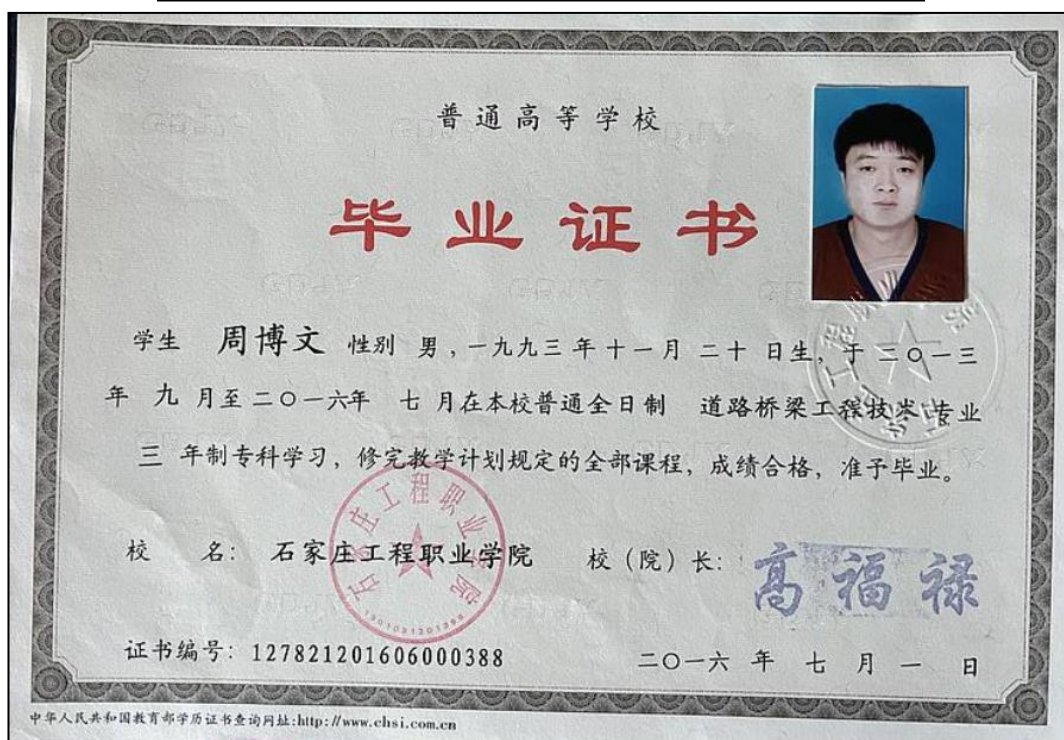 普通高等学校
毕业证书
学生 周博文 性别 男，一九九三年十一月二十日生，于二〇一三
年 九 月至二〇一六年 七 月在本校普通全日制 道路桥梁工程技术 专业
三 年制专科学习，修完教学计划规定的全部课程，成绩合格，准予毕业。
校 名：石家庄工程职业学院 校（院）长：高福禄
石家庄工程职业学院
证书编号：127821201606000388 二〇一六年 七 月 一 日
中华人民共和国教育部学历证书查询网址:http://www.chsi.com.cn